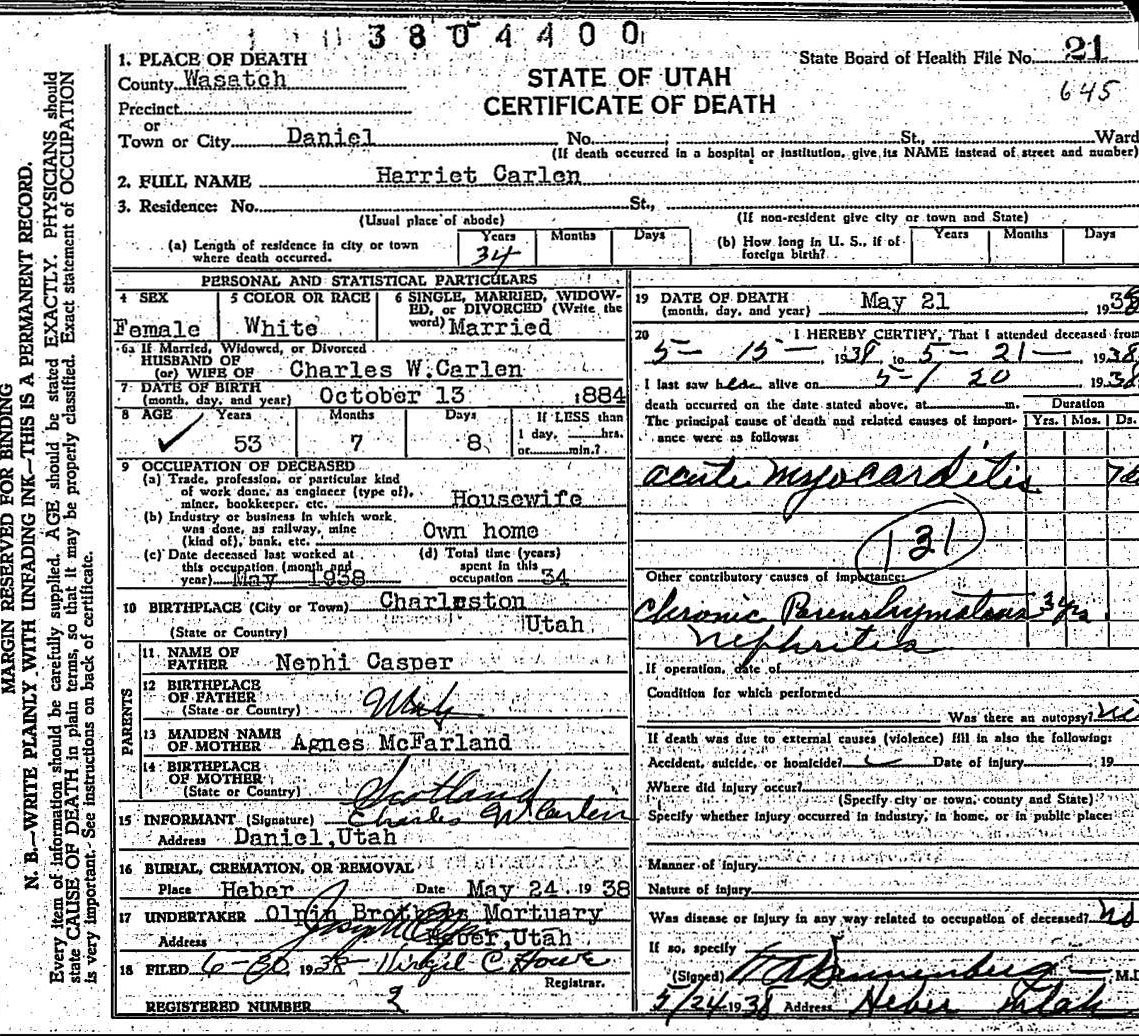 3804400
State Board of Health File No. 21
645
STATE OF UTAH
CERTIFICATE OF DEATH
1. PLACE OF DEATH
County Wasatch
Precinct
or
Town or City Daniel No. St., Ward
(If death occurred in a hospital or institution, give its NAME instead of street and number)
2. FULL NAME Harriet Carlen
3. Residence: No. St.,
(Usual place of abode) (If non-resident give city or town and State)
(a) Length of residence in city or town where death occurred. Years 34 Months Days
(b) How long in U. S., if of foreign birth? Years Months Days
PERSONAL AND STATISTICAL PARTICULARS
4 SEX
Female
5 COLOR OR RACE
White
6 SINGLE, MARRIED, WIDOW-
ED, or DIVORCED (Write the
word) Married
6a If Married, Widowed, or Divorced
HUSBAND OF
(or) WIFE OF Charles W.Carlen
7 DATE OF BIRTH
(month, day, and year) October 13 1884
8 AGE Years Months Days If LESS than
53 7 8 1 day, hrs.
or min.?
9 OCCUPATION OF DECEASED
(a) Trade, profession, or particular kind
of work done, as engineer (type of),
miner, bookkeeper, etc. Housewife
(b) Industry or business in which work
was done, as railway, mine
(kind of), bank, etc. Own home
(c) Date deceased last worked at
this occupation (month and
year) May 1938
(d) Total time (years)
spent in this
occupation 34
10 BIRTHPLACE (City or Town) Charleston
(State or Country) Utah
PARENTS
11 NAME OF
FATHER Nephi Casper
12 BIRTHPLACE
OF FATHER
(State or Country)
13 MAIDEN NAME
OF MOTHER Agnes McFarland
14 BIRTHPLACE
OF MOTHER
(State or Country) Scotland
15 INFORMANT (Signature) Charles W Carlen
Address Daniel,Utah
16 BURIAL, CREMATION, OR REMOVAL
Place Heber Date May 24 1938
17 UNDERTAKER Olpin Brothers Mortuary
Address Heber,Utah
18 FILED 6-30 1938 C. Howe
Registrar.
REGISTERED NUMBER 9
19 DATE OF DEATH
(month, day, and year) May 21 1938
20 I HEREBY CERTIFY, That I attended deceased from
5-15- 1938 to 5-21- 1938
I last saw alive on 5-20 1938
death occurred on the date stated above, at m. Duration
The principal cause of death and related causes of import-
ance were as follows: Yrs. Mos. Ds.
acute myocarditis 7
131
Other contributory causes of importance:
Chronic Parenchymatous 3 yrs.
nephritis
If operation, date of
Condition for which performed
Was there an autopsy? no
If death was due to external causes (violence) fill in also the following:
Accident, suicide, or homicide? Date of injury , 19
Where did injury occur?
(Specify city or town, county and State)
Specify whether injury occurred in industry, in home, or in public place:
Manner of injury
Nature of injury
Was disease or injury in any way related to occupation of deceased? no
If so, specify
(Signed) M.D
5/24 1938 Address Heber Utah
MARGIN RESERVED FOR BINDING
N. B.—WRITE PLAINLY WITH UNFADING INK—THIS IS A PERMANENT RECORD.
Every item of information should be carefully supplied. AGE should be stated EXACTLY. PHYSICIANS should
state CAUSE OF DEATH in plain terms, so that it may be properly classified. Exact statement of OCCUPATION
is very important. See instructions on back of certificate.